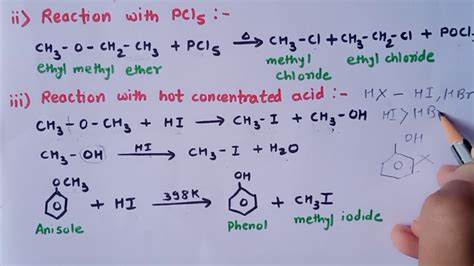 ii) Reaction with PCl5 :-
CH3 - O - CH2 - CH3 + PCl5 →Δ CH3-Cl + CH3-CH2-Cl + POCl
ethyl methyl ether methyl chloride ethyl chloride
iii) Reaction with hot concentrated acid :- HX - HI, HBr
CH3 - O - CH3 + HI → CH3-I + CH3-OH HI > HBr
CH3 - OH →HI CH3-I + H2O
OH
X
OCH3 + HI →398K OH + CH3I
Anisole Phenol methyl iodide